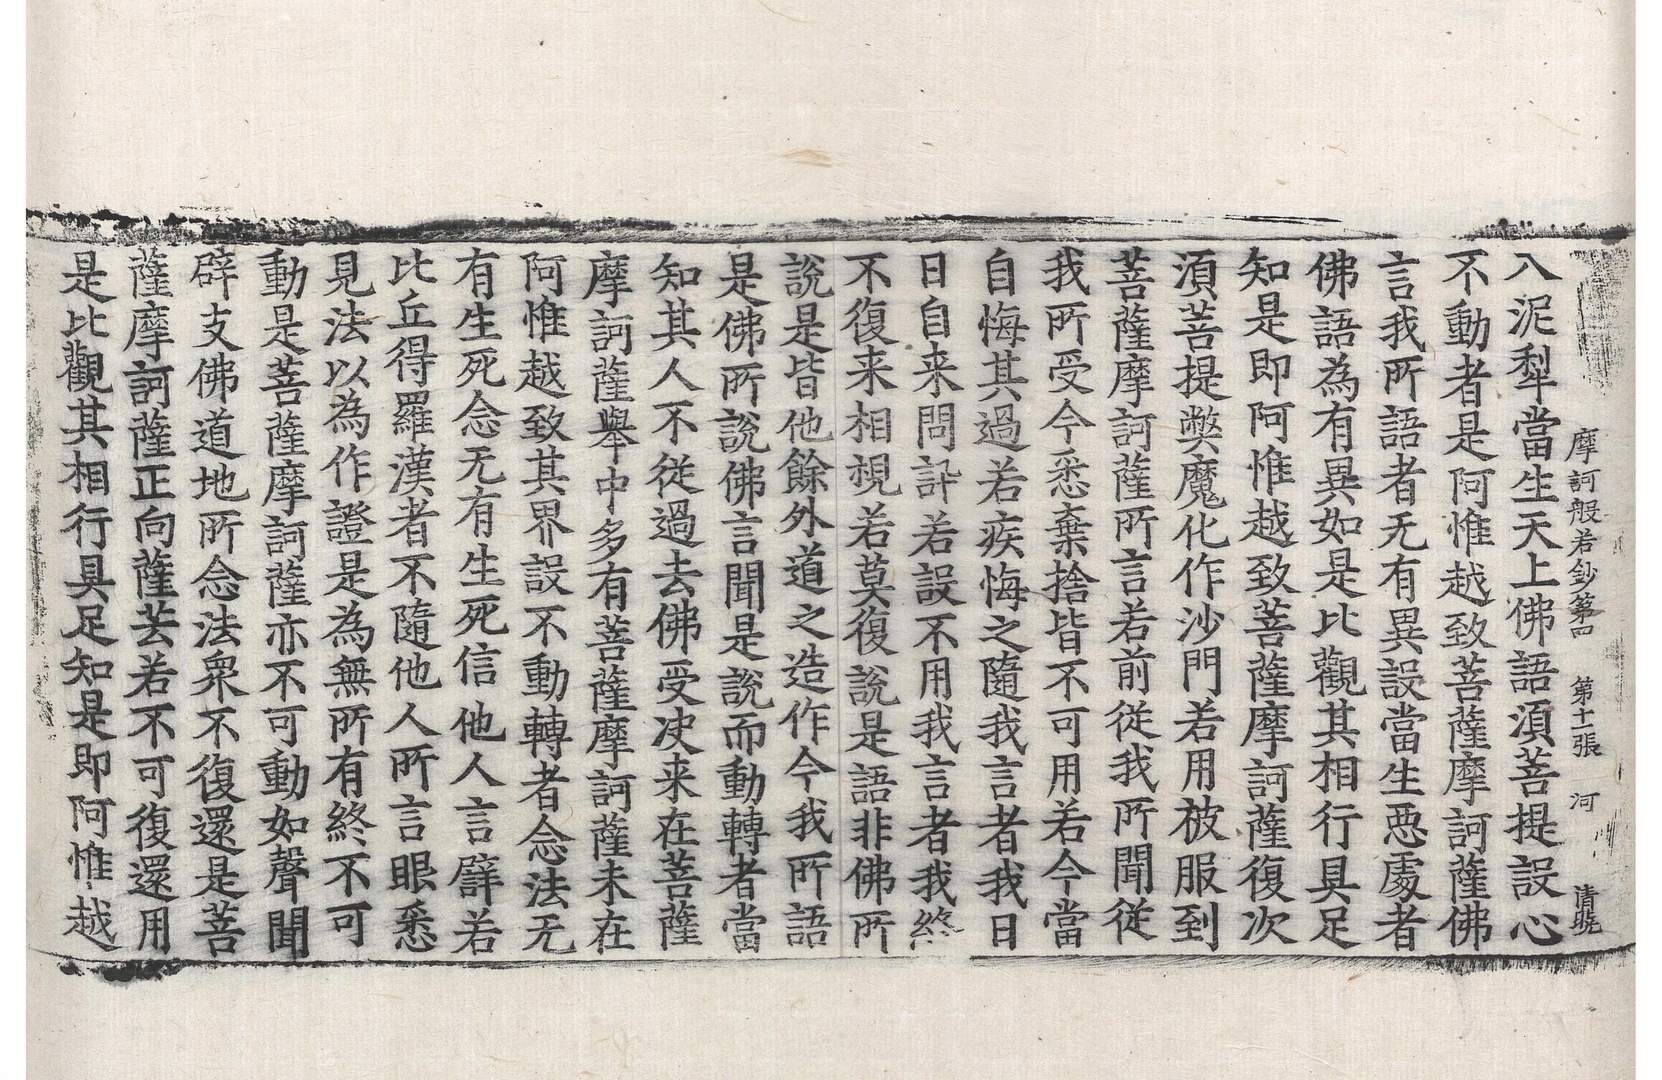 摩訶般若鈔第四 第十一張 河 清晓
入泥犁當生天上佛語湏菩提設心
不動者是阿惟越致菩薩摩訶薩佛
言我所語者无有異設當生惡處者
佛語為有異如是比觀其相行具足
知是即阿惟越致菩薩摩訶薩復次
湏菩提弊魔化作沙門若用被服到
菩薩摩訶薩所言若前從我所聞從
我所受今悉棄捨皆不可用若今當
自悔其過若疾悔之隨我言者我日
日自来問訊若設不用我言者我終
不復来相視若莫復說是語非佛所
說是皆他餘外道之造作今我所語
是佛所說佛言聞是說而動轉者當
知其人不從過去佛受决来在菩薩
摩訶薩舉中多有菩薩摩訶薩未在
阿惟越致其界設不動轉者念法无
有生死念无有生死信他人言譬若
比丘得羅漢者不隨他人所言眼悉
見法以為作證是為無所有終不可
動是菩薩摩訶薩亦不可動如聲聞
辟支佛道地所念法衆不復還是菩
薩摩訶薩正向薩芸若不可復還用
是比觀其相行具足知是即阿惟越